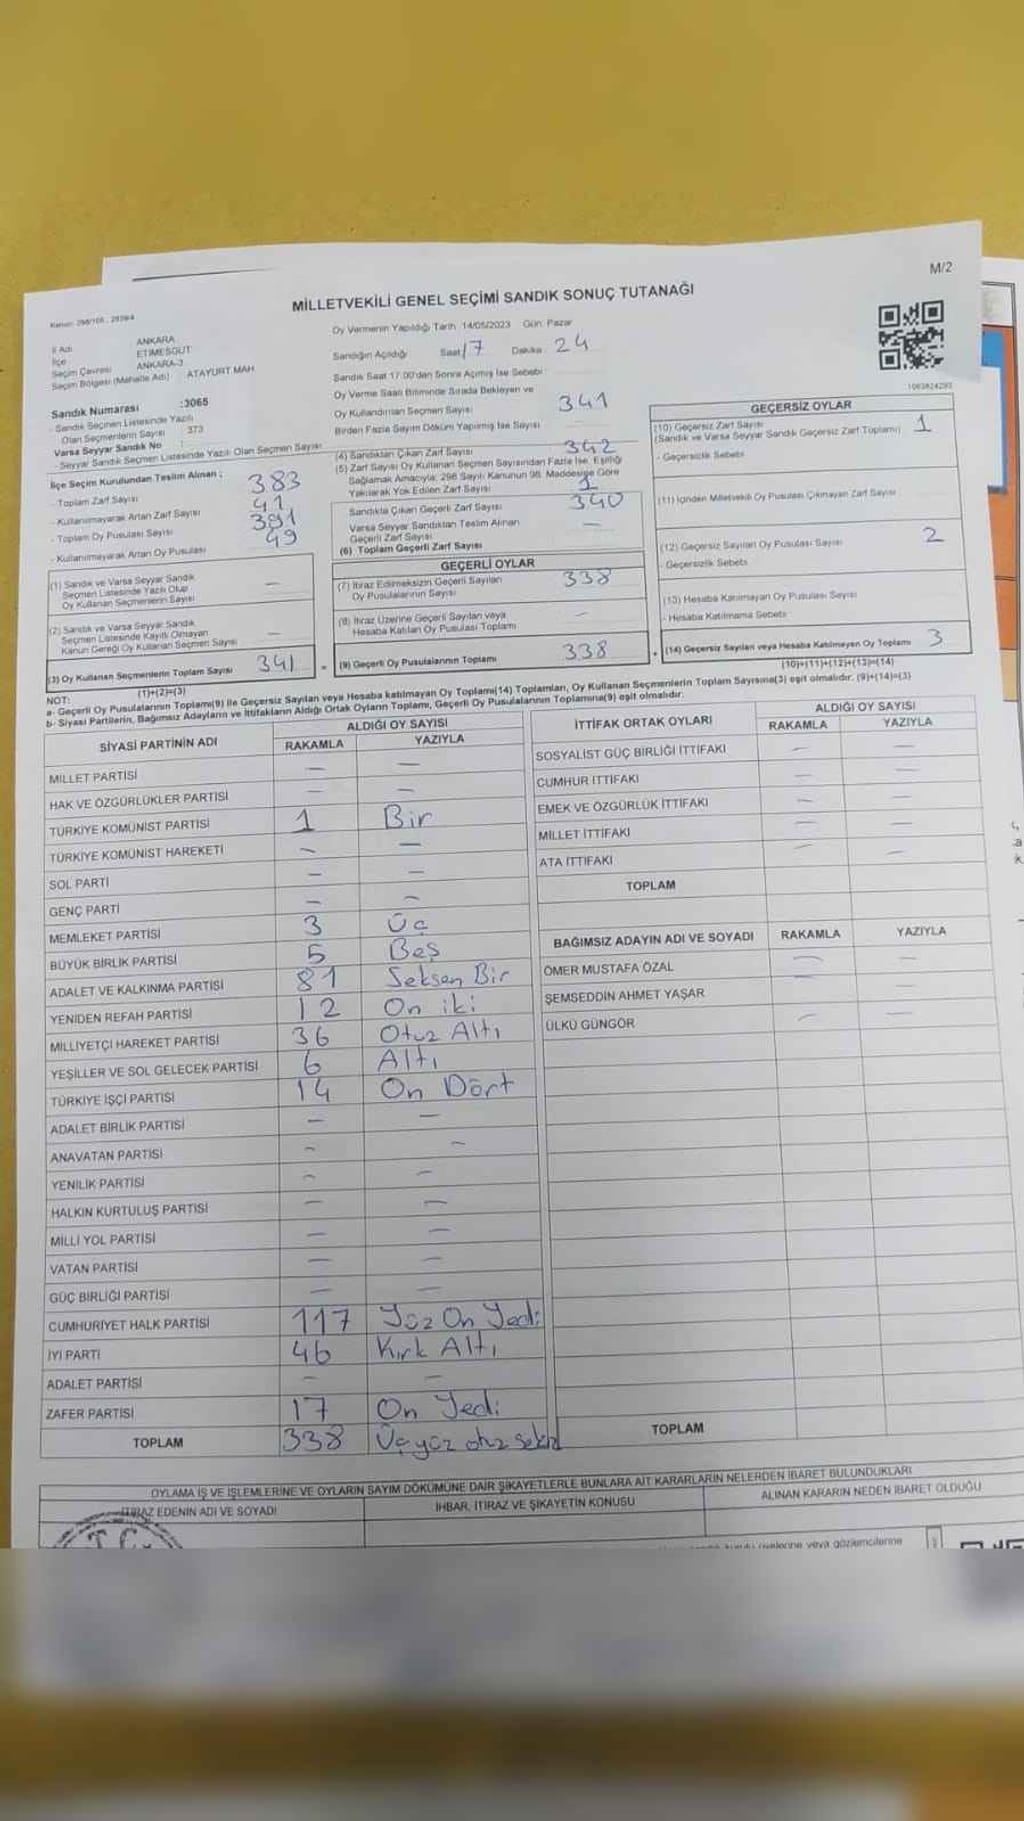 M/2
MİLLETVEKİLİ GENEL SEÇİMİ SANDIK SONUÇ TUTANAĞI
İl Adı ANKARA
İlçe ETİMESGUT
Seçim Çevresi ANKARA-3
Seçim Bölgesi (Mahalle Adı) ATAYURT MAH
Sandık Numarası :3065
- Sandık Seçmen Listesinde Yazılı
Olan Seçmenlerin Sayısı 373
Varsa Seyyar Sandık No
- Seyyar Sandık Seçmen Listesinde Yazılı Olan Seçmen Sayısı
İlçe Seçim Kurulundan Teslim Alınan ;
- Toplam Zarf Sayısı 383
- Kullanılmayarak Artan Zarf Sayısı 41
- Toplam Oy Pusulası Sayısı 391
- Kullanılmayarak Artan Oy Pusulası 49
(1) Sandık ve Varsa Seyyar Sandık
Seçmen Listesinde Yazılı Olup
Oy Kullanan Seçmenlerin Sayısı —
(2) Sandık ve Varsa Seyyar Sandık
Seçmen Listesinde Kayıtlı Olmayan
Kanun Gereği Oy Kullanan Seçmen Sayısı —
(3) Oy Kullanan Seçmenlerin Toplam Sayısı 341
(1)+(2)=(3)
Oy Vermenin Yapıldığı Tarih 14/05/2023 Gün: Pazar
Sandığın Açıldığı Saat 17 Dakika : 24
Sandık Saat 17:00'den Sonra Açılmış İse Sebebi :
Oy Verme Saati Bitiminde Sırada Bekleyen ve
Oy Kullandırılan Seçmen Sayısı 341
Birden Fazla Sayım Döküm Yapılmış İse Sayısı
(4) Sandıktan Çıkan Zarf Sayısı 342
(5) Zarf Sayısı Oy Kullanan Seçmen Sayısından Fazla İse, Eşitliği
Sağlamak Amacıyla; 298 Sayılı Kanunun 98. Maddesine Göre
Yakılarak Yok Edilen Zarf Sayısı 1
Sandıkta Çıkan Geçerli Zarf Sayısı 340
Varsa Seyyar Sandıktan Teslim Alınan
Geçerli Zarf Sayısı —
(6) Toplam Geçerli Zarf Sayısı
GEÇERLİ OYLAR
(7) İtiraz Edilmeksizin Geçerli Sayılan
Oy Pusulalarının Sayısı 338
(8) İtiraz Üzerine Geçerli Sayılan veya
Hesaba Katılan Oy Pusulası Toplamı —
(9) Geçerli Oy Pusulalarının Toplamı 338
1063824293
GEÇERSİZ OYLAR
(10) Geçersiz Zarf Sayısı
(Sandık ve Varsa Seyyar Sandık Geçersiz Zarf Toplamı) 1
- Geçersizlik Sebebi
(11) İçinden Milletvekili Oy Pusulası Çıkmayan Zarf Sayısı
(12) Geçersiz Sayılan Oy Pusulası Sayısı 2
- Geçersizlik Sebebi
(13) Hesaba Katılmayan Oy Pusulası Sayısı
- Hesaba Katılmama Sebebi
(14) Geçersiz Sayılan veya Hesaba Katılmayan Oy Toplamı 3
(10)+(11)+(12)+(13)=(14)
NOT:
a- Geçerli Oy Pusulasının Toplamı(9) ile Geçersiz Sayılan veya Hesaba katılmayan Oy Toplamı(14) Toplamları, Oy Kullanan Seçmenlerin Toplam Sayısına(3) eşit olmalıdır. (9)+(14)=(3)
b- Siyasi Partilerin, Bağımsız Adayların ve İttifakların Aldığı Ortak Oyların Toplamı, Geçerli Oy Pusulalarının Toplamına(9) eşit olmalıdır.
SİYASİ PARTİNİN ADI ALDIĞI OY SAYISI
RAKAMLA YAZIYLA
MİLLET PARTİSİ — —
HAK VE ÖZGÜRLÜKLER PARTİSİ — —
TÜRKİYE KOMÜNİST PARTİSİ 1 Bir
TÜRKİYE KOMÜNİST HAREKETİ — —
SOL PARTİ — —
GENÇ PARTİ — —
MEMLEKET PARTİSİ 3 Üç
BÜYÜK BİRLİK PARTİSİ 5 Beş
ADALET VE KALKINMA PARTİSİ 81 Seksen Bir
YENİDEN REFAH PARTİSİ 12 On iki
MİLLİYETÇİ HAREKET PARTİSİ 36 Otuz Altı
YEŞİLLER VE SOL GELECEK PARTİSİ 6 Altı
TÜRKİYE İŞÇİ PARTİSİ 14 On Dört
ADALET BİRLİK PARTİSİ — —
ANAVATAN PARTİSİ — —
YENİLİK PARTİSİ — —
HALKIN KURTULUŞ PARTİSİ — —
MİLLİ YOL PARTİSİ — —
VATAN PARTİSİ — —
GÜÇ BİRLİĞİ PARTİSİ — —
CUMHURİYET HALK PARTİSİ 117 Yüz On Yedi
İYİ PARTİ 46 Kırk Altı
ADALET PARTİSİ — —
ZAFER PARTİSİ 17 On Yedi
TOPLAM 338 Üçyüz otuz sekiz
İTTİFAK ORTAK OYLARI ALDIĞI OY SAYISI
RAKAMLA YAZIYLA
SOSYALİST GÜÇ BİRLİĞİ İTTİFAKI — —
CUMHUR İTTİFAKI — —
EMEK VE ÖZGÜRLÜK İTTİFAKI — —
MİLLET İTTİFAKI — —
ATA İTTİFAKI — —
TOPLAM
BAĞIMSIZ ADAYIN ADI VE SOYADI RAKAMLA YAZIYLA
ÖMER MUSTAFA ÖZAL — —
ŞEMSEDDİN AHMET YAŞAR — —
ÜLKÜ GÜNGÖR — —
TOPLAM
OYLAMA İŞ VE İŞLEMLERİNE VE OYLARIN SAYIM DÖKÜMÜNE DAİR ŞİKAYETLERLE BUNLARA AİT KARARLARIN NELERDEN İBARET BULUNDUKLARI
İTİRAZ EDENİN ADI VE SOYADI İHBAR, İTİRAZ VE ŞİKAYETİN KONUSU ALINAN KARARIN NEDEN İBARET OLDUĞU
T.C.
veya gözlemcilerine